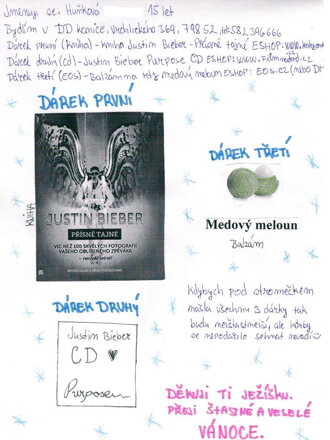 Jmenuji se: Huňková 15 let
Bydlím v DD Konice, Vrchlického 369, 798 52, tel: 582 396 666
Dárek první (kniha) - kniha Justin Bieber - Přísně tajné ESHOP: www.
Dárek druhý (cd) - Justin Bieber Purpose CD ESHOP: www.
Dárek třetí (EOS) - Balzám na rty medový meloun ESHOP: EOS.cz
DÁREK PRVNÍ
KNIHA
JUSTIN BIEBER
PŘÍSNĚ TAJNÉ
VÍC NEŽ 100 SKVĚLÝCH FOTOGRAFIÍ
VAŠEHO OBLÍBENÉHO ZPĚVÁKA
DÁREK TŘETÍ
Medový meloun
Balzám
DÁREK DRUHÝ
Justin Bieber
CD ♥
Purpose
Kdybych pod stromečkem
našla všechny 3 dárky tak
budu nejšťastnější, ale kdyby
se nepodařilo sehnat nevadí
DĚKUJI TI JEŽÍŠKU.
PŘEJI ŠŤASTNÉ A VESELÉ
VÁNOCE.